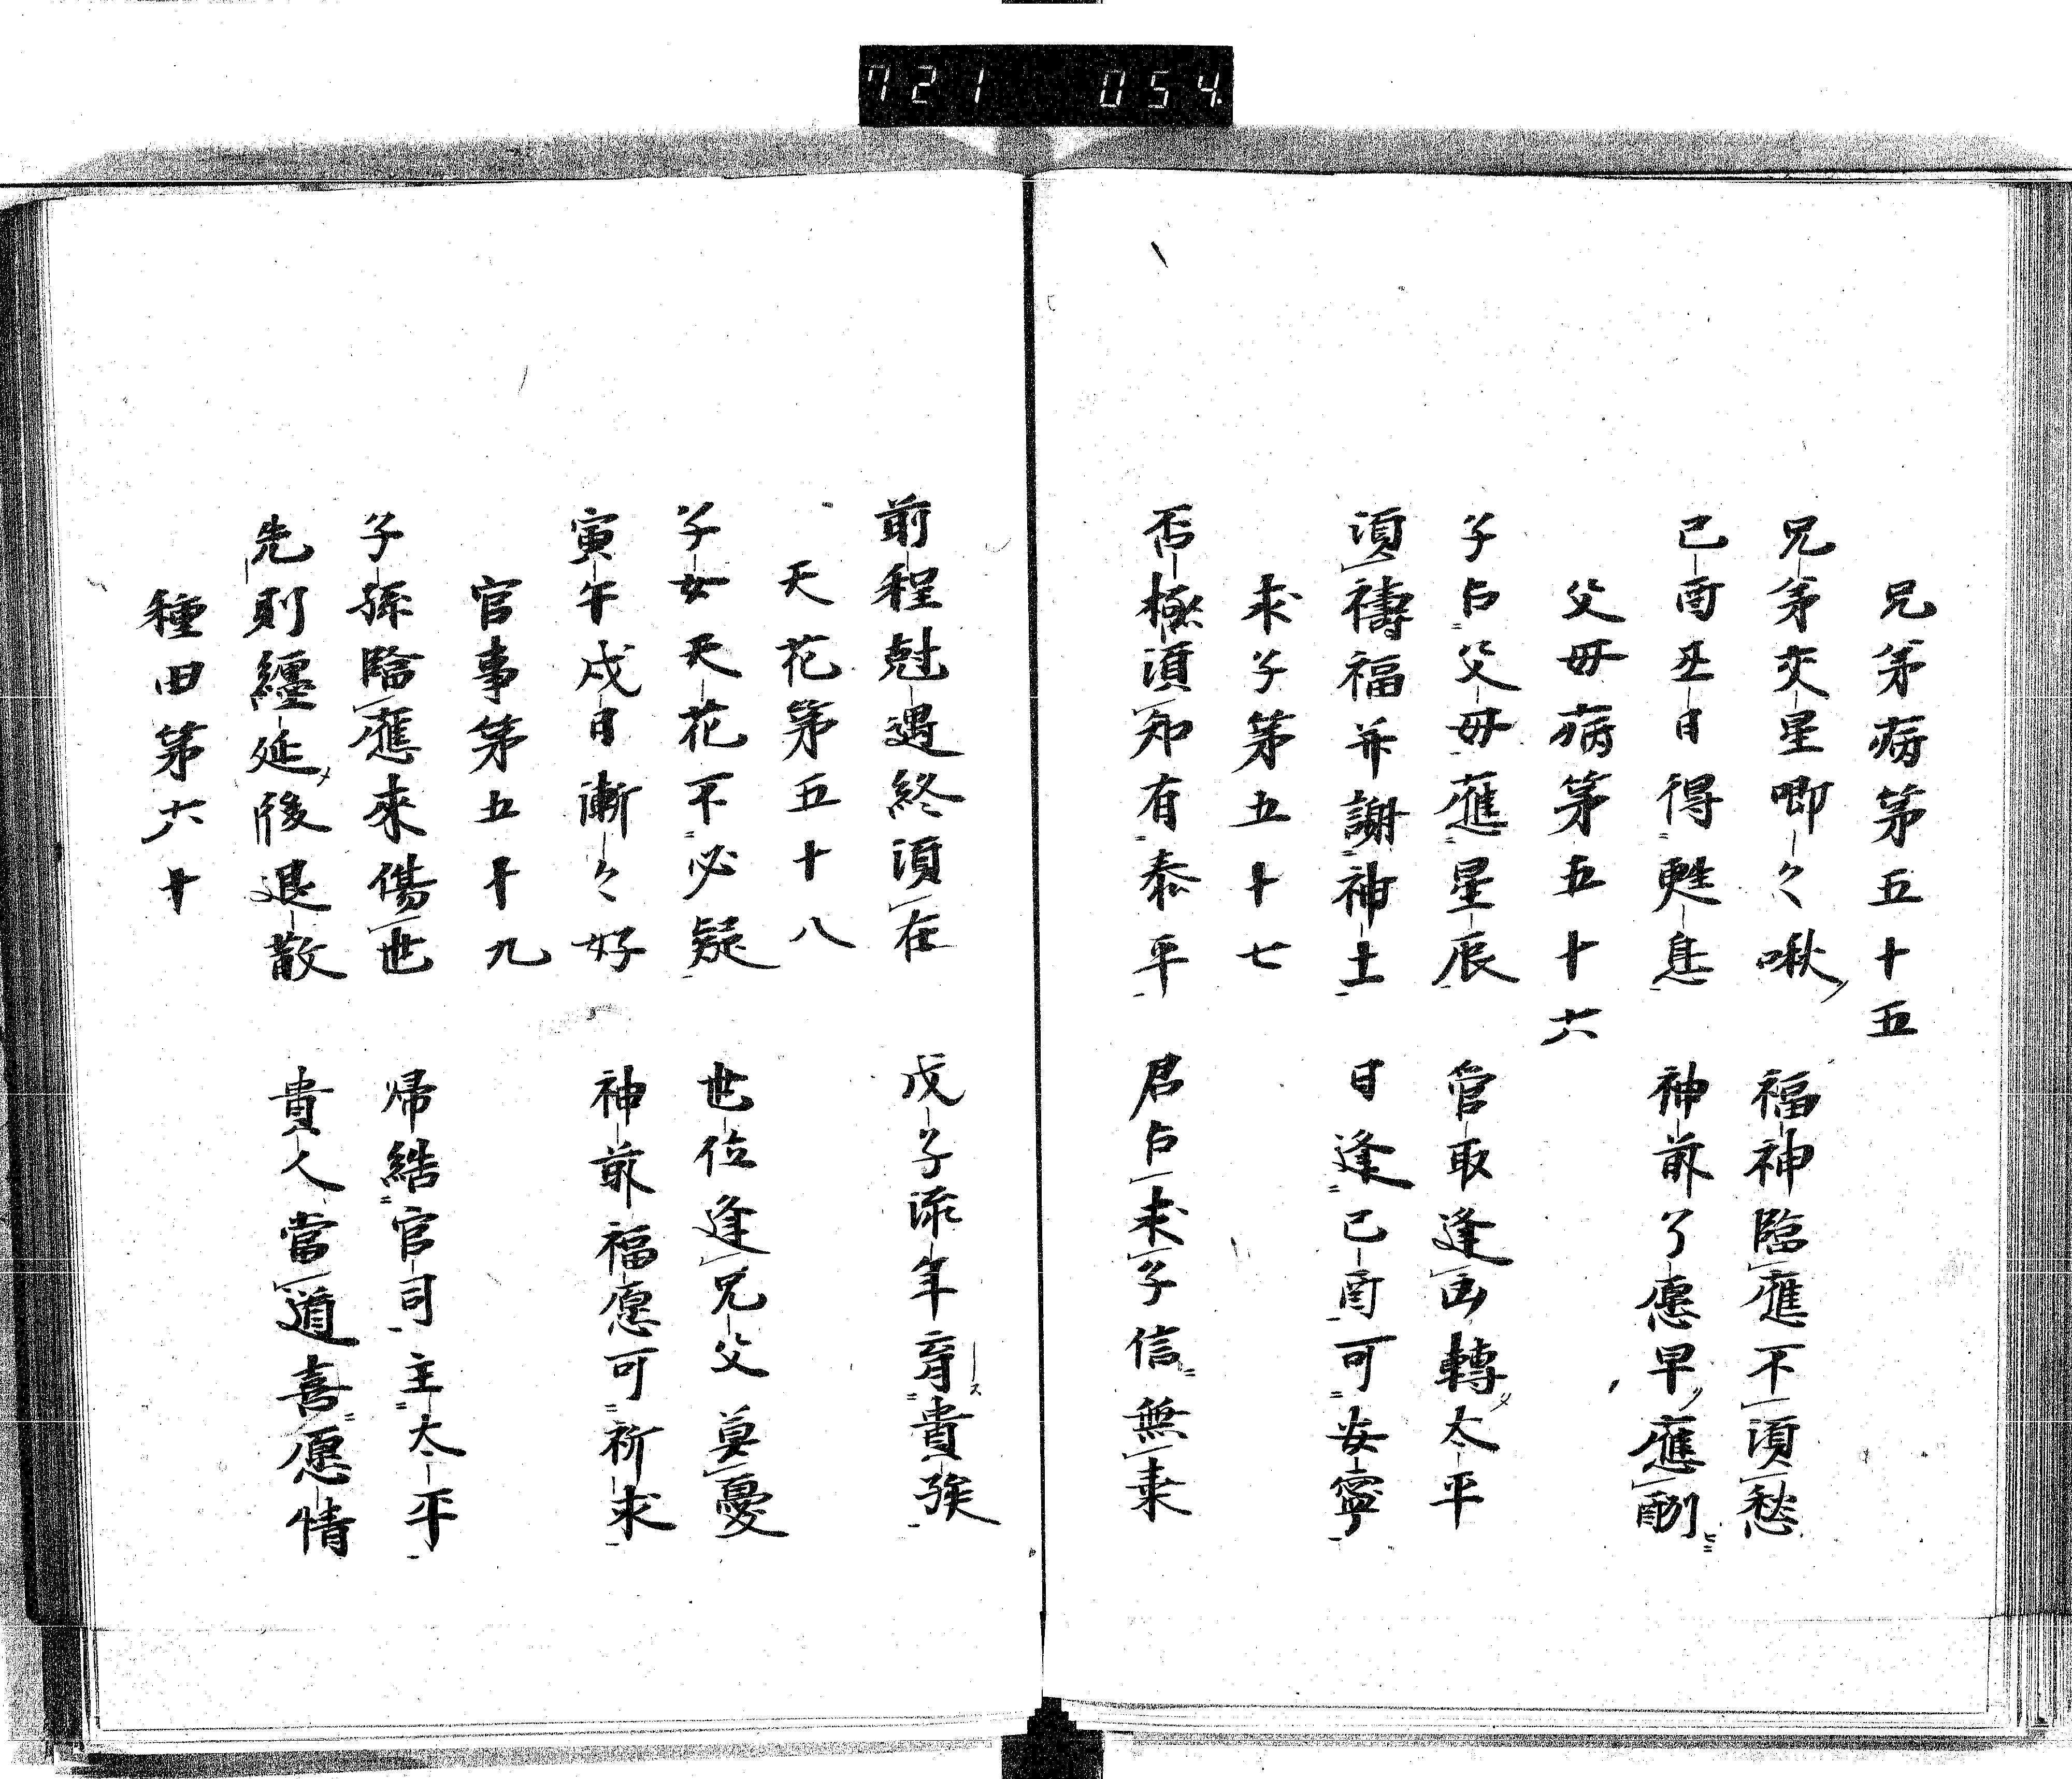 721 054
兄弟病第五十五
兄弟交星唧々啾 福神臨應不須愁
己酉丑日得甦息 神前了愿早應酬
父母病第五十六
子占父母應星辰 官取逢凶轉太平
須禱福并謝神土 日逢己酉可安寧
求子第五十七
否極須知有泰平 君占求子信無来
前程尅遇終須在 戊子流年育貴孩
天花第五十八
子女天花不必疑 世位逢兄父莫憂
寅午戌日漸々好 神前福愿可祈求
官事第五十九
子孫臨應來傷世 帰結官司主太平
先則纏延後退散 貴人當道喜愿情
種田第六十